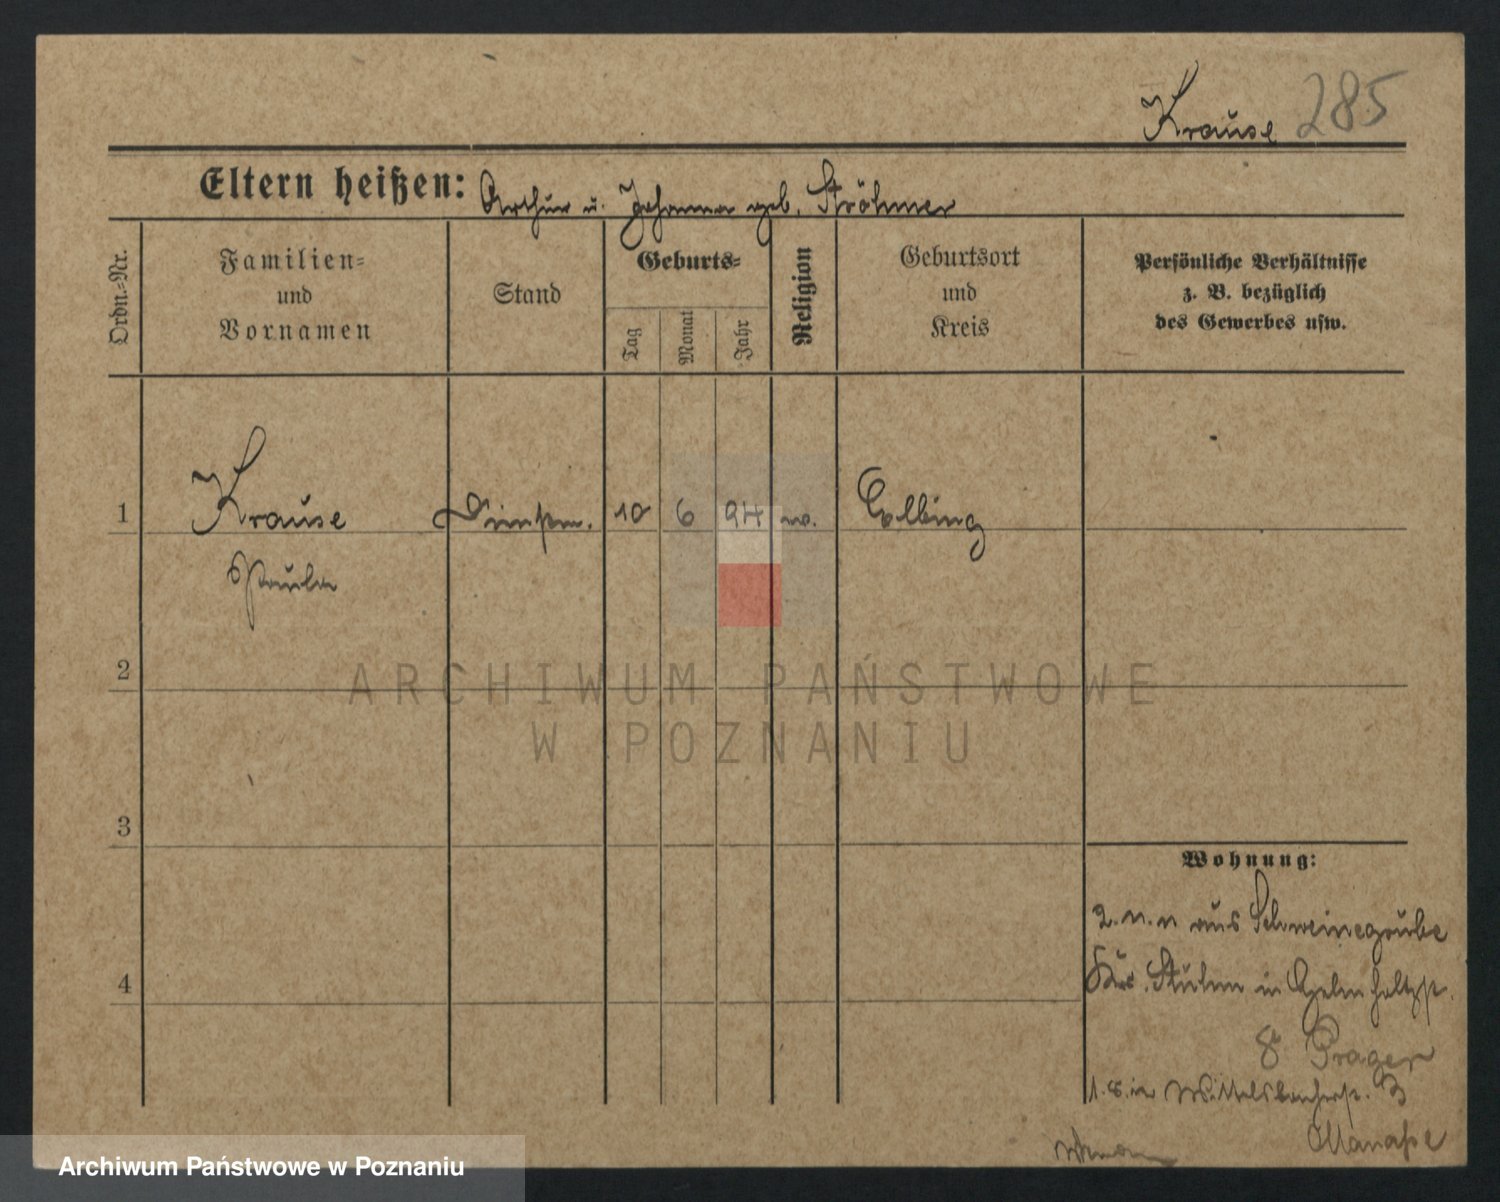 Krause 285
Eltern heißen: Arthur u. Johanna geb. Ströhmer
Ordn.-Nr.
Familien-
und
Vornamen
Stand
Geburts-
Tag
Monat
Jahr
Religion
Geburtsort
und
Kreis
Persönliche Verhältnisse
z. B. bezüglich
des Gewerbes usw.
1
Krause
Paula
10
6
94
Elbing
2
3
4
ARCHIWUM PAŃSTWOWE
W POZNANIU
Wohnung:
aus Schweinegrube
Krs. Stuhm in
8 Prager
1.8. in Wittelsbacherstr. 3
Manasse
Archiwum Państwowe w Poznaniu